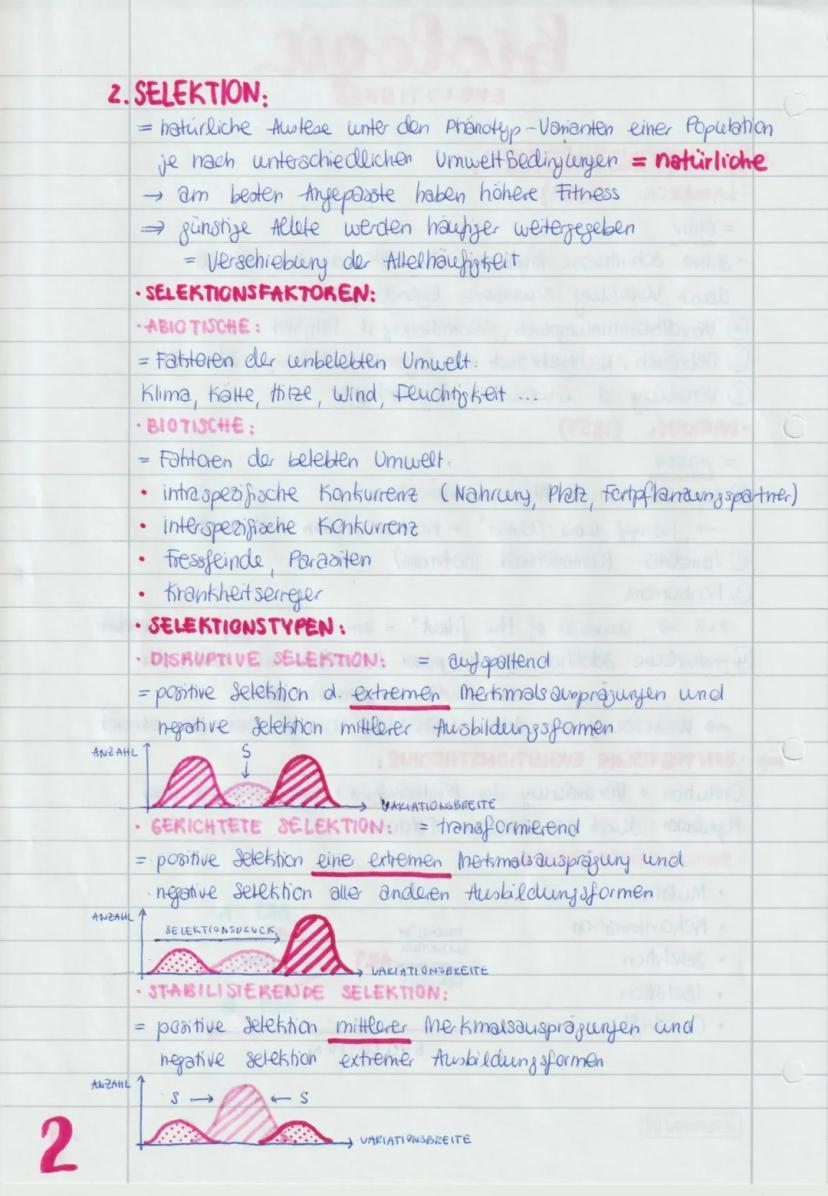 2. SELEKTION:
= natürliche Auslese unter den Phänotyp-Varianten einer Population
je nach unterschiedlichen Umweltbedingungen = natürliche
→ am besten Angepasste haben höhere Fitness
⇒ günstige Allele werden häufiger weitergegeben
= Verschiebung der Allelhäufigkeit
· SELEKTIONSFAKTOREN:
· ABIOTISCHE:
= Faktoren der unbelebten Umwelt:
Klima, Kälte, Hitze, Wind, Feuchtigkeit ...
· BIOTISCHE:
= Faktoren der belebten Umwelt:
• intraspezifische Konkurrenz (Nahrung, Platz, Fortpflanzungspartner)
• interspezifische Konkurrenz
• Fressfeinde, Parasiten
• Krankheitserreger
· SELEKTIONSTYPEN:
· DISRUPTIVE SELEKTION: = aufspaltend
= positive Selektion d. extremen Merkmalsausprägungen und
negative Selektion mittlerer Ausbildungsformen
ANZAHL S
VARIATIONSBREITE
· GERICHTETE SELEKTION: = transformierend
= positive Selektion eine extremen Merkmalsausprägung und
negative Selektion aller anderen Ausbildungsformen
ANZAHL
SELEKTIONSDRUCK
VARIATIONSBREITE
· STABILISIERENDE SELEKTION:
= positive Selektion mittlerer Merkmalsausprägungen und
negative Selektion extremer Ausbildungsformen
ANZAHL
S → ← S
VARIATIONSBREITE
2